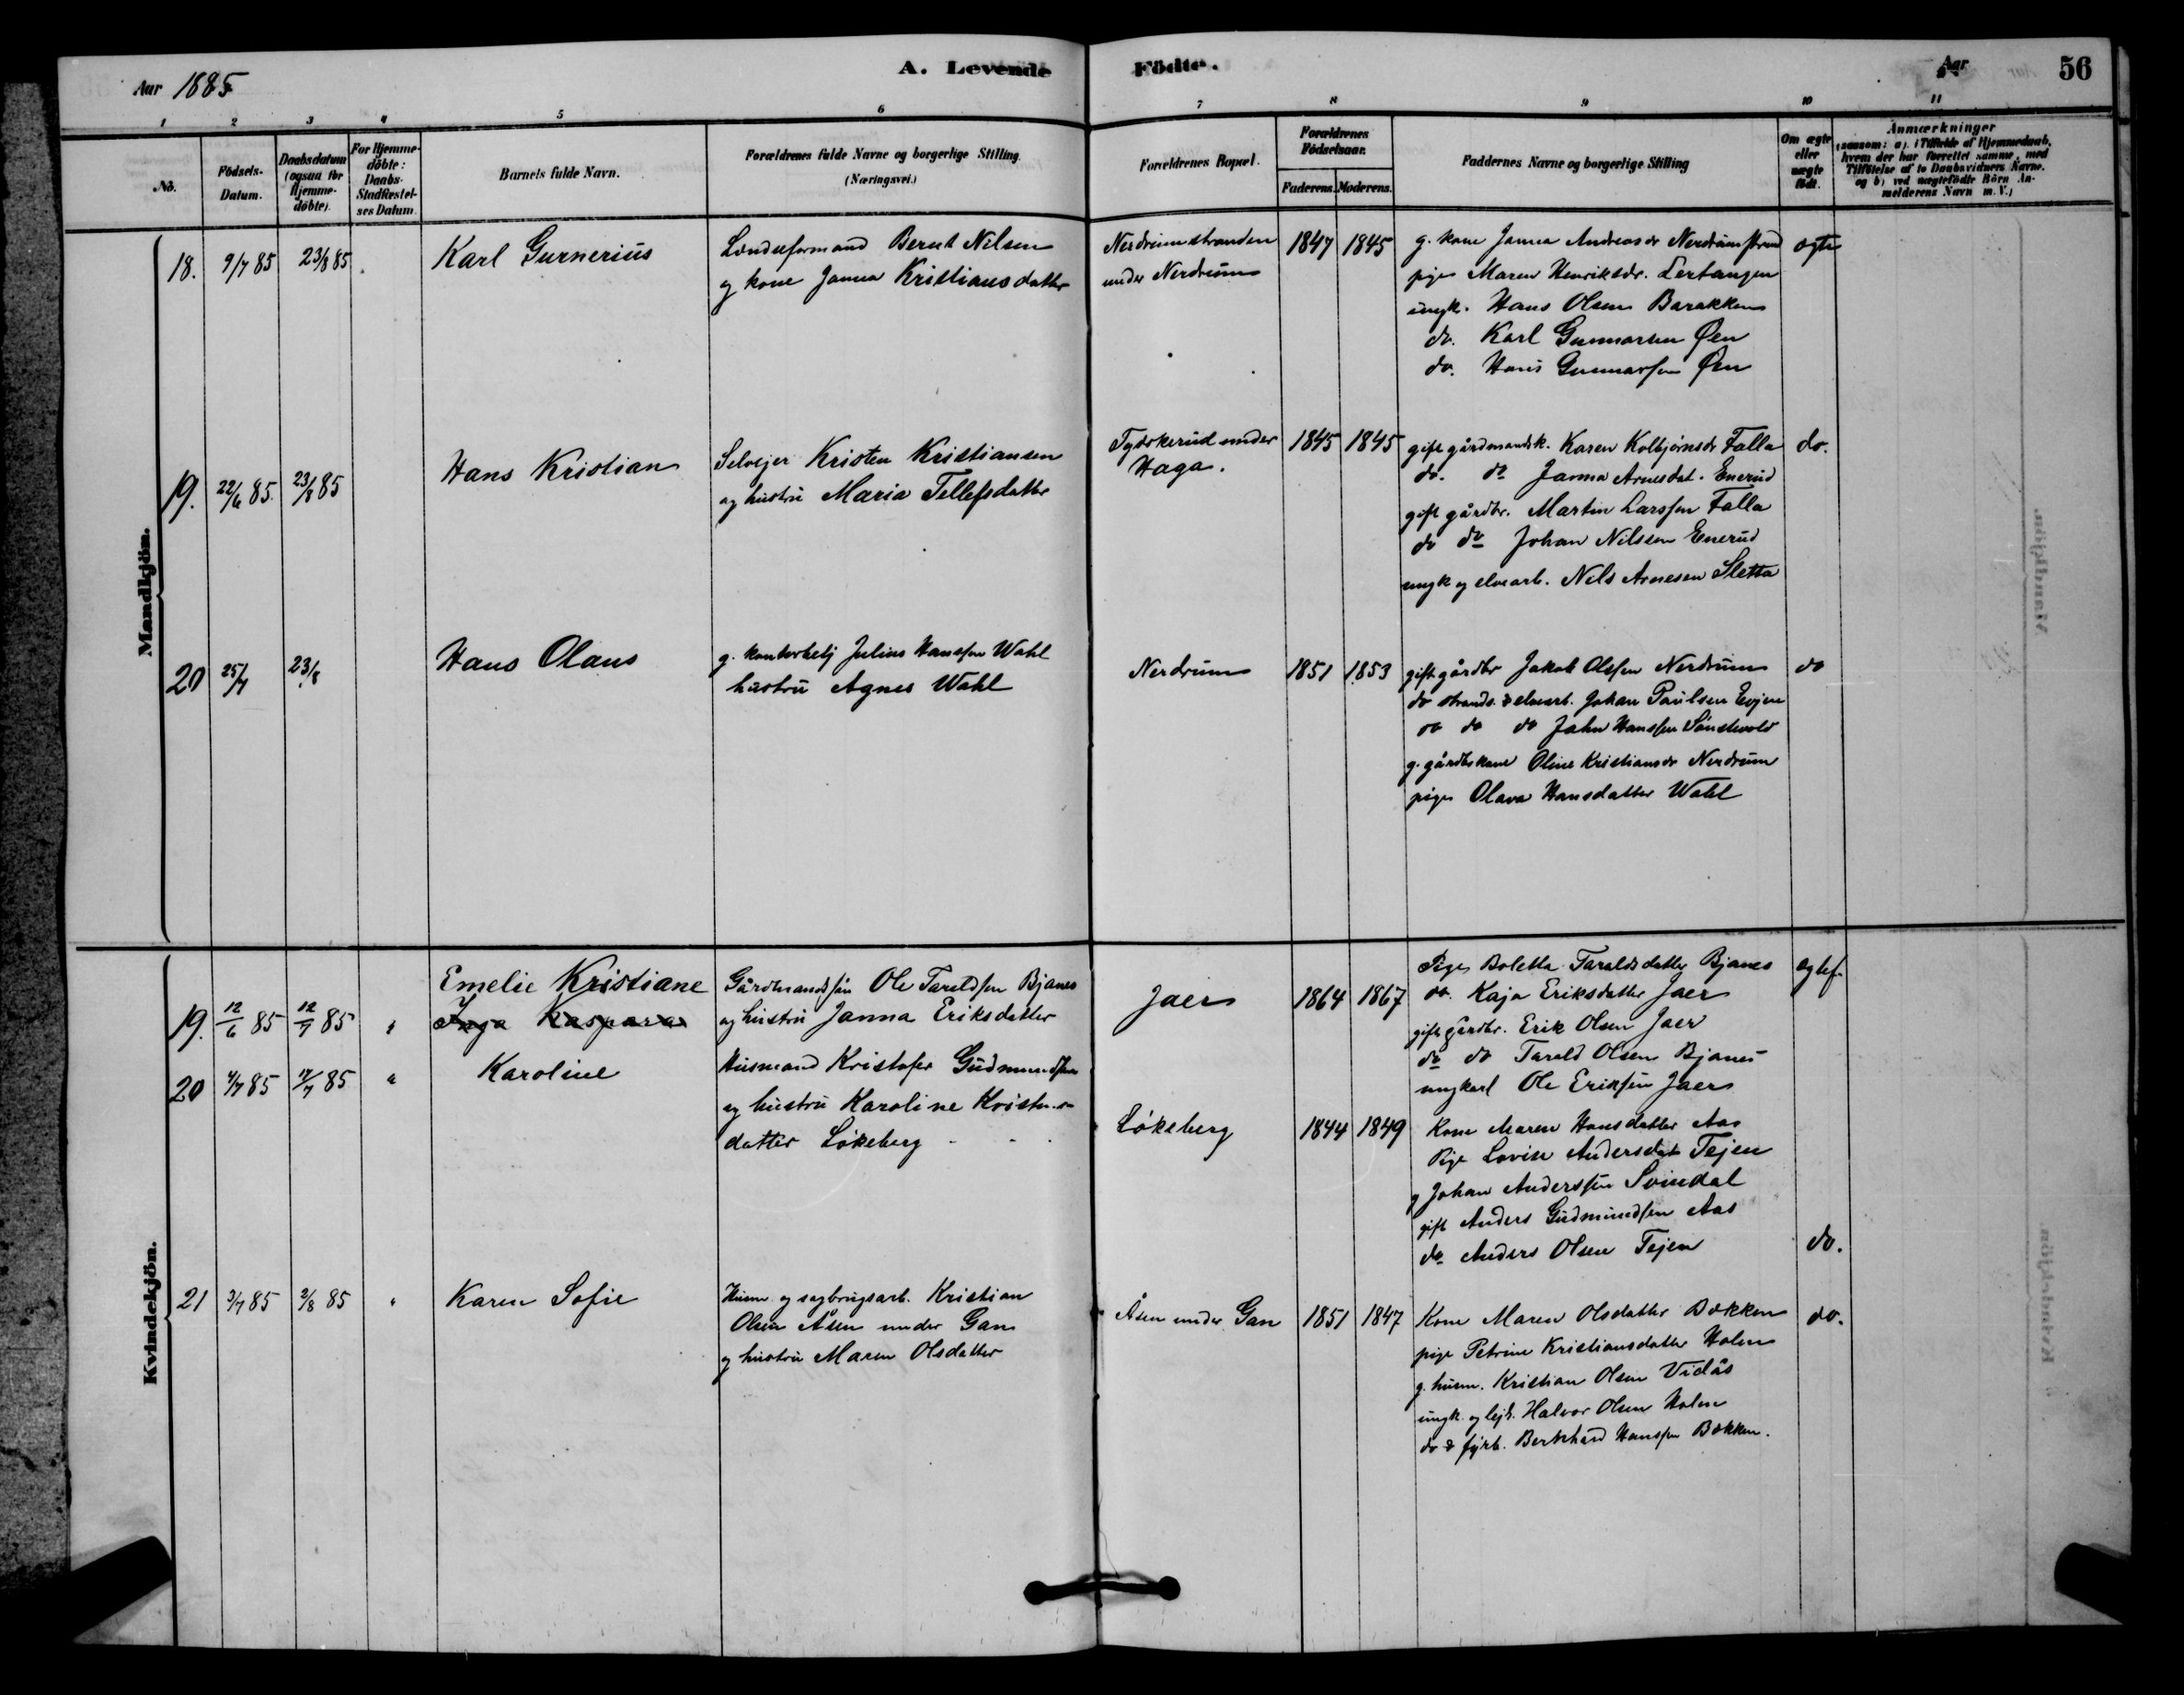 Aar 1885
A. Levende
Födte.
Aar
56
1 2 3 4 5 6 7 8 9 10 11
No.
Födsels-Datum.
Daabsdatum (ogsaa for Hjemme-döbte).
For Hjemme-döbte: Daabs-Stadfæstel-ses Datum.
Barnets fulde Navn.
Forældrenes fulde Navne og borgerlige Stilling (Næringsvei.)
Forældrenes Bopæl.
Forældrenes Födselsaar.
Faderens. Moderens.
Faddernes Navne og borgerlige Stilling
Om ægte eller uægte födt.
Anmærkninger
(saasom: a) i Tilfælde af Hjemmedaab, hvem der har forrettet samme, med Tilföielse af to Daabsvidners Navne. og b) ved uægtefödte Börn An-melderens Navn m. V.)
Mandkjön.
18. 9/7 85 23/8 85 Karl Gurnerius
Lændseformand Bernt Nilsen
og kone Janna Kristiansdatter
Nerdrumstranden
under Nerdrum
1847 1845
g. kone Janna Andreasdr Nerdrumstrand
pige Maren Henriksdr. Lertangen
ungk. Hans Olsen Barakken
do. Karl Gunnarsen Øen
do. Hans Gunnarsen Øen
ægte
19. 22/6 85. 23/8 85 Hans Kristian
Selvejer Kristen Kristiansen
og hustru Maria Tellefsdatter
Tyskerud under
Haga.
1845 1845
gift gårdmandsk. Karen Kolbjørnsdr Falla
do. do Janna Arnesdat. Enerud
gift gårdbr. Martin Larssen Falla
do do Johan Nilssen Enerud
ungk og elvearb. Nils Arnesen Sletta
do.
20 25/7 23/8 Hans Olaus
g. kontorbetj Julius Hanssen Wahl
hustru Agnes Wahl
Nerdrum
1851 1853
gift gårdbr Jakob Olssen Nerdrum
do strands. & elvearb. Johan Paulsen Evjen
do do do John Hanssen Sønstevold
g. gårdbskone Oline Kristiansdr Nerdrum
pige Olava Hansdatter Wahl
do
Kvindekjön.
19. 12/6 85 12/7 85 " Emelie Kristiane
Inga Kaspara
Gårdmandssøn Ole Taraldsen Bjanes
og hustru Janna Eriksdatter
Jaer
1864 1867
Pige Boletta Taraldsdatter Bjanes
do. Kaja Eriksdatter Jaer
gift gårdbr. Erik Olsen Jaer
do do Tarald Olsen Bjanes
ungkarl Ole Eriksen Jaer
ægtef.
20 4/7 85 12/7 85 " Karoline
Husmand Kristofer Gudmundsen
og hustru Karoline
datter Løkeberg
Løkeberg
1844 1849
Kone Maren Hansdatter Aas
Pige Lovise Andersdat Tejen
g Johan Anderssen Svindal
gift Anders Gudmundsen Aas
do Anders Olsen Tejen
do.
21 3/7 85 2/8 85 " Karen Sofie
Husm. og sagbrugsarb. Kristian
Olsen Åsen under Gan
og hustru Maren Olsdatter
Åsen under Gan
1851 1847
Kone Maren Olsdatter Bakken
pige Petrine Kristiansdatter Holen
g. husm. Kristian Olsen Vidås
ungk. og lejl. Halvor Olsen Holen
do & fyrb. Bernhard Hanssen Bakken.
do.